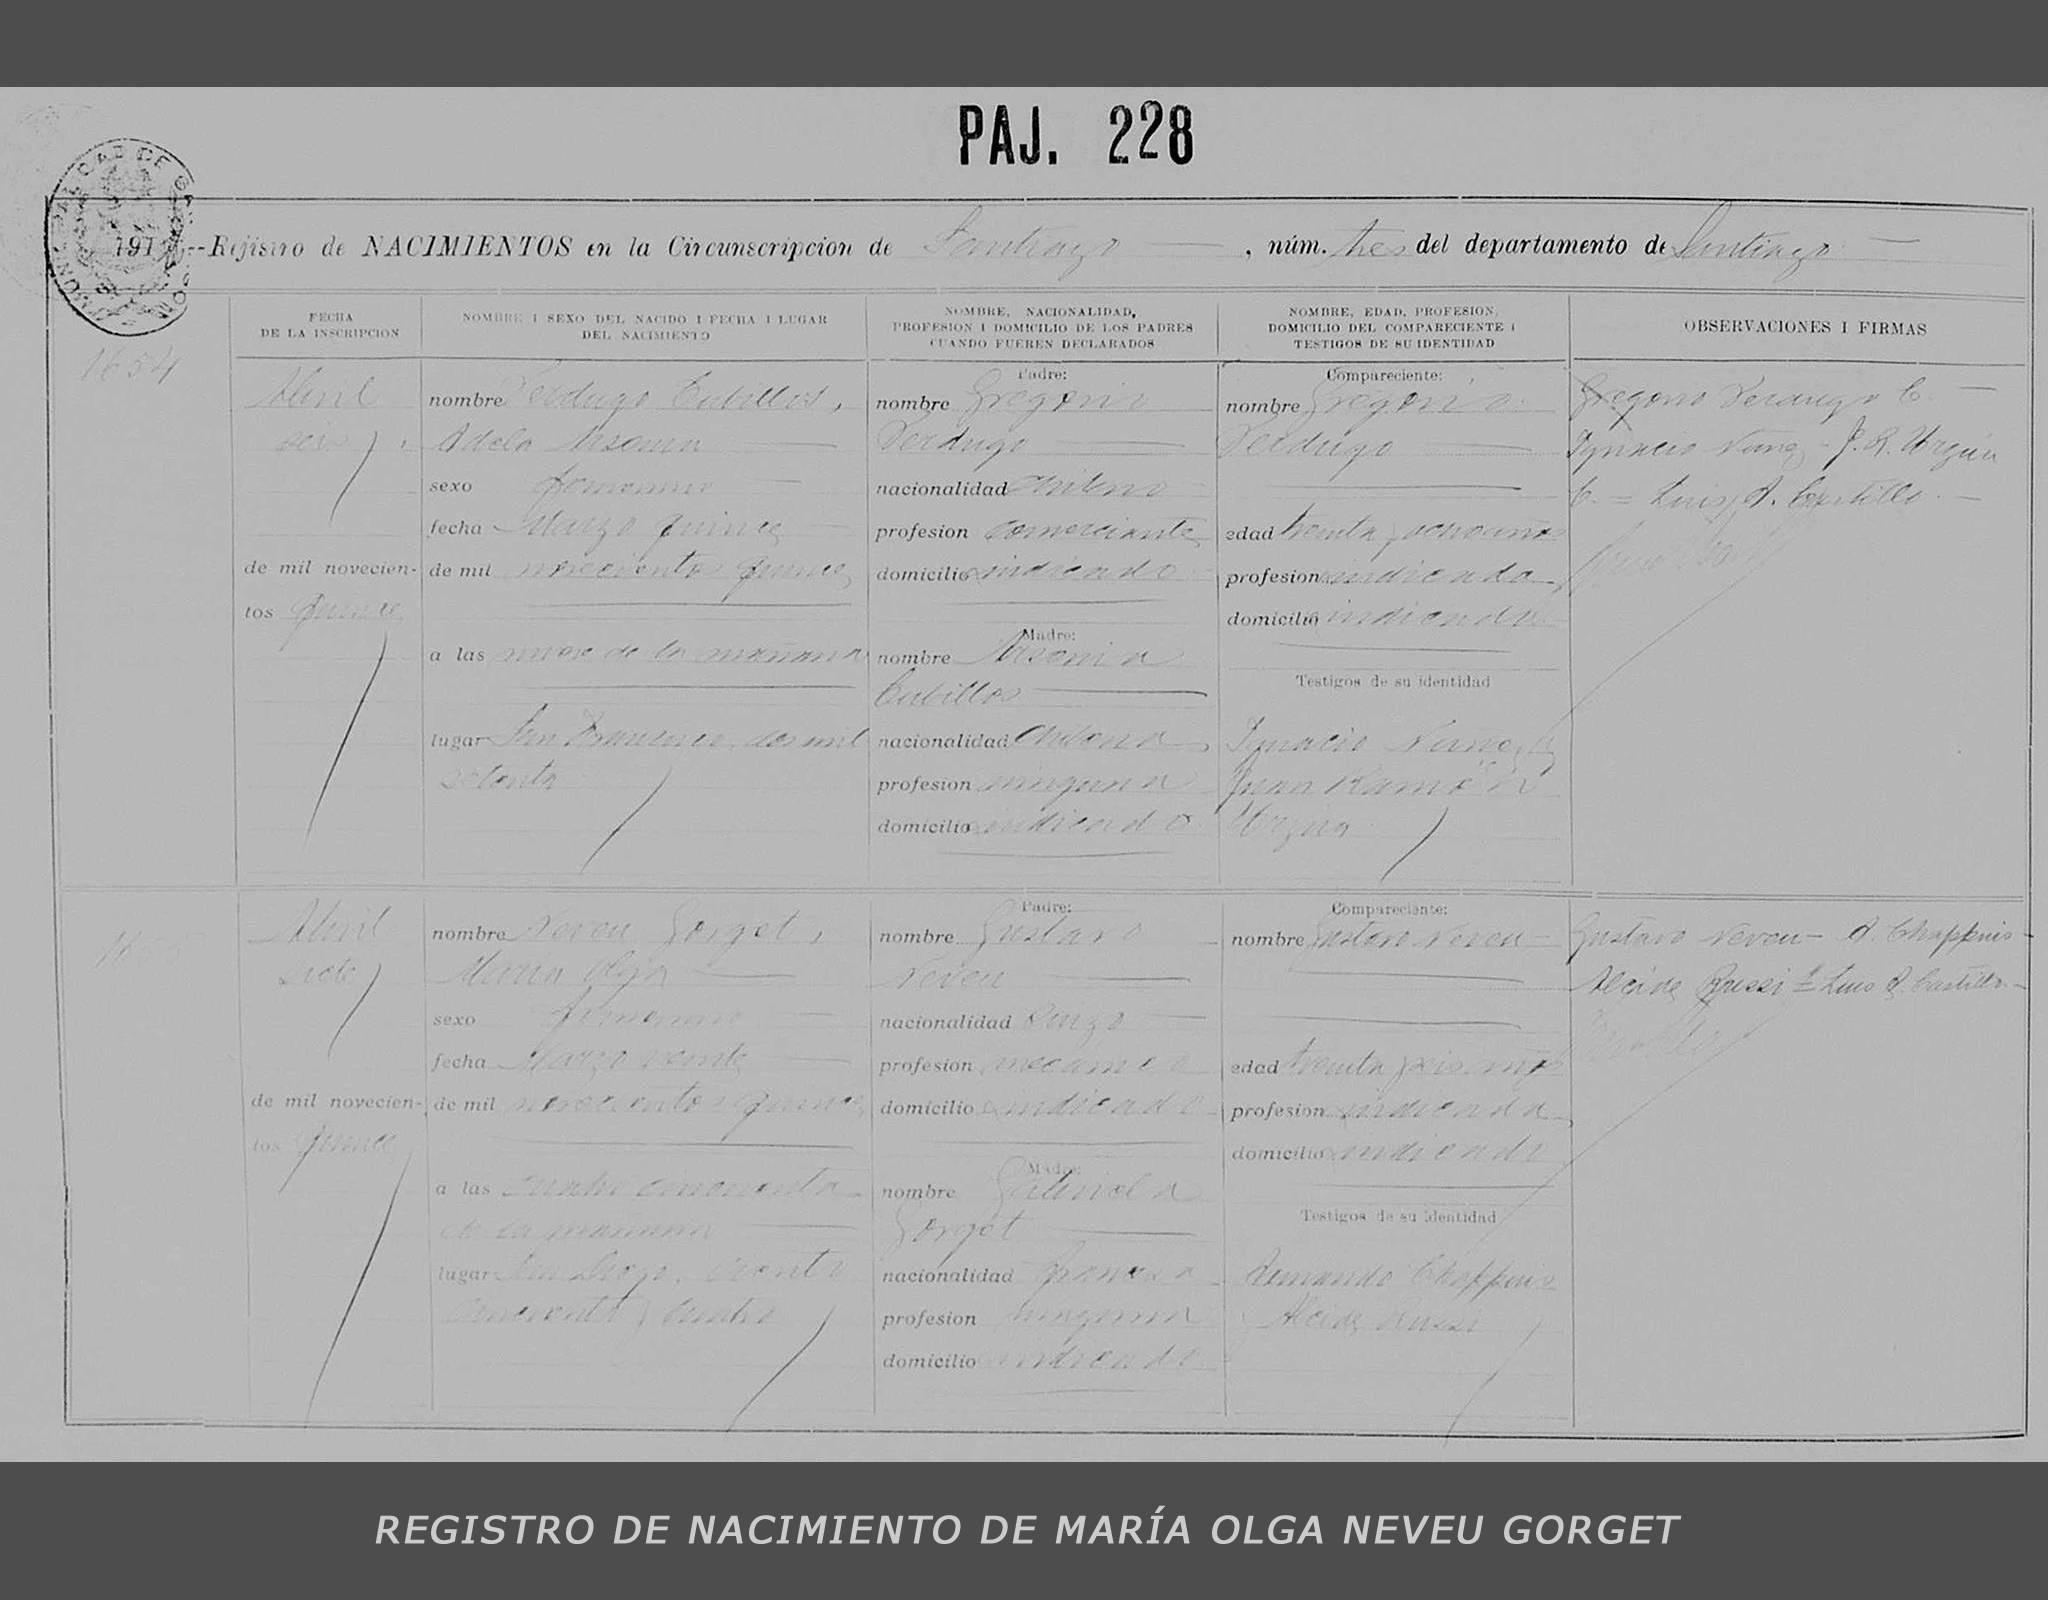 PAJ. 228
MUNICIPALIDAD DE
191 --Rejistro de NACIMIENTOS en la Circunscripcion de Santiago, núm. tres del departamento de Santiago
FECHA DE LA INSCRIPCION
NOMBRE I SEXO DEL NACIDO I FECHA I LUGAR DEL NACIMIENTO
NOMBRE, NACIONALIDAD, PROFESION I DOMICILIO DE LOS PADRES CUANDO FUEREN DECLARADOS
NOMBRE, EDAD, PROFESION, DOMICILIO DEL COMPARECIENTE I TESTIGOS DE SU IDENTIDAD
OBSERVACIONES I FIRMAS
1654
Abril
seis
de mil novecien-
tos quince
nombre Verdugo Cubillos,
Adela Arsenia
sexo femenino
fecha Marzo quince
de mil novecientos quince
a las nueve de la mañana
lugar San Francisco, dos mil
setenta
Padre:
nombre Gregorio
Verdugo
nacionalidad chileno
profesion comerciante
domicilio indicado
Madre:
nombre Arsenia
Cubillos
nacionalidad chilena
profesion ninguna
domicilio indicado
Compareciente:
nombre Gregorio
Verdugo
edad treinta y ocho años
profesion indicada
domicilio indicado
Testigos de su identidad
Ignacio Nunez
Juan Ramón
Urzua
Gregorio Verdugo C.
Ignacio Nunez - J. R. Urzúa
C. = Luis A. Castillo.
Abril
siete
de mil novecien-
tos quince
nombre Neveu Gorget,
María Olga
sexo femenino
fecha Marzo veinte
de mil novecientos quince
a las cuatro cincuenta
de la mañana
lugar San Diego, ciento
cincuenta y cuatro
Padre:
nombre Gustavo
Neveu
nacionalidad Suizo
profesion mecánico
domicilio indicado
Madre:
nombre
Gorget
nacionalidad francesa
profesion ninguna
domicilio indicado
Compareciente:
nombre Gustavo Neveu
edad treinta y seis años
profesion indicada
domicilio indicado
Testigos de su identidad
Armando Chappuis
y Alcide Russi
Gustavo Neveu - A. Chappuis -
Alcide Russi = Luis A. Castillo. -
REGISTRO DE NACIMIENTO DE MARÍA OLGA NEVEU GORGET